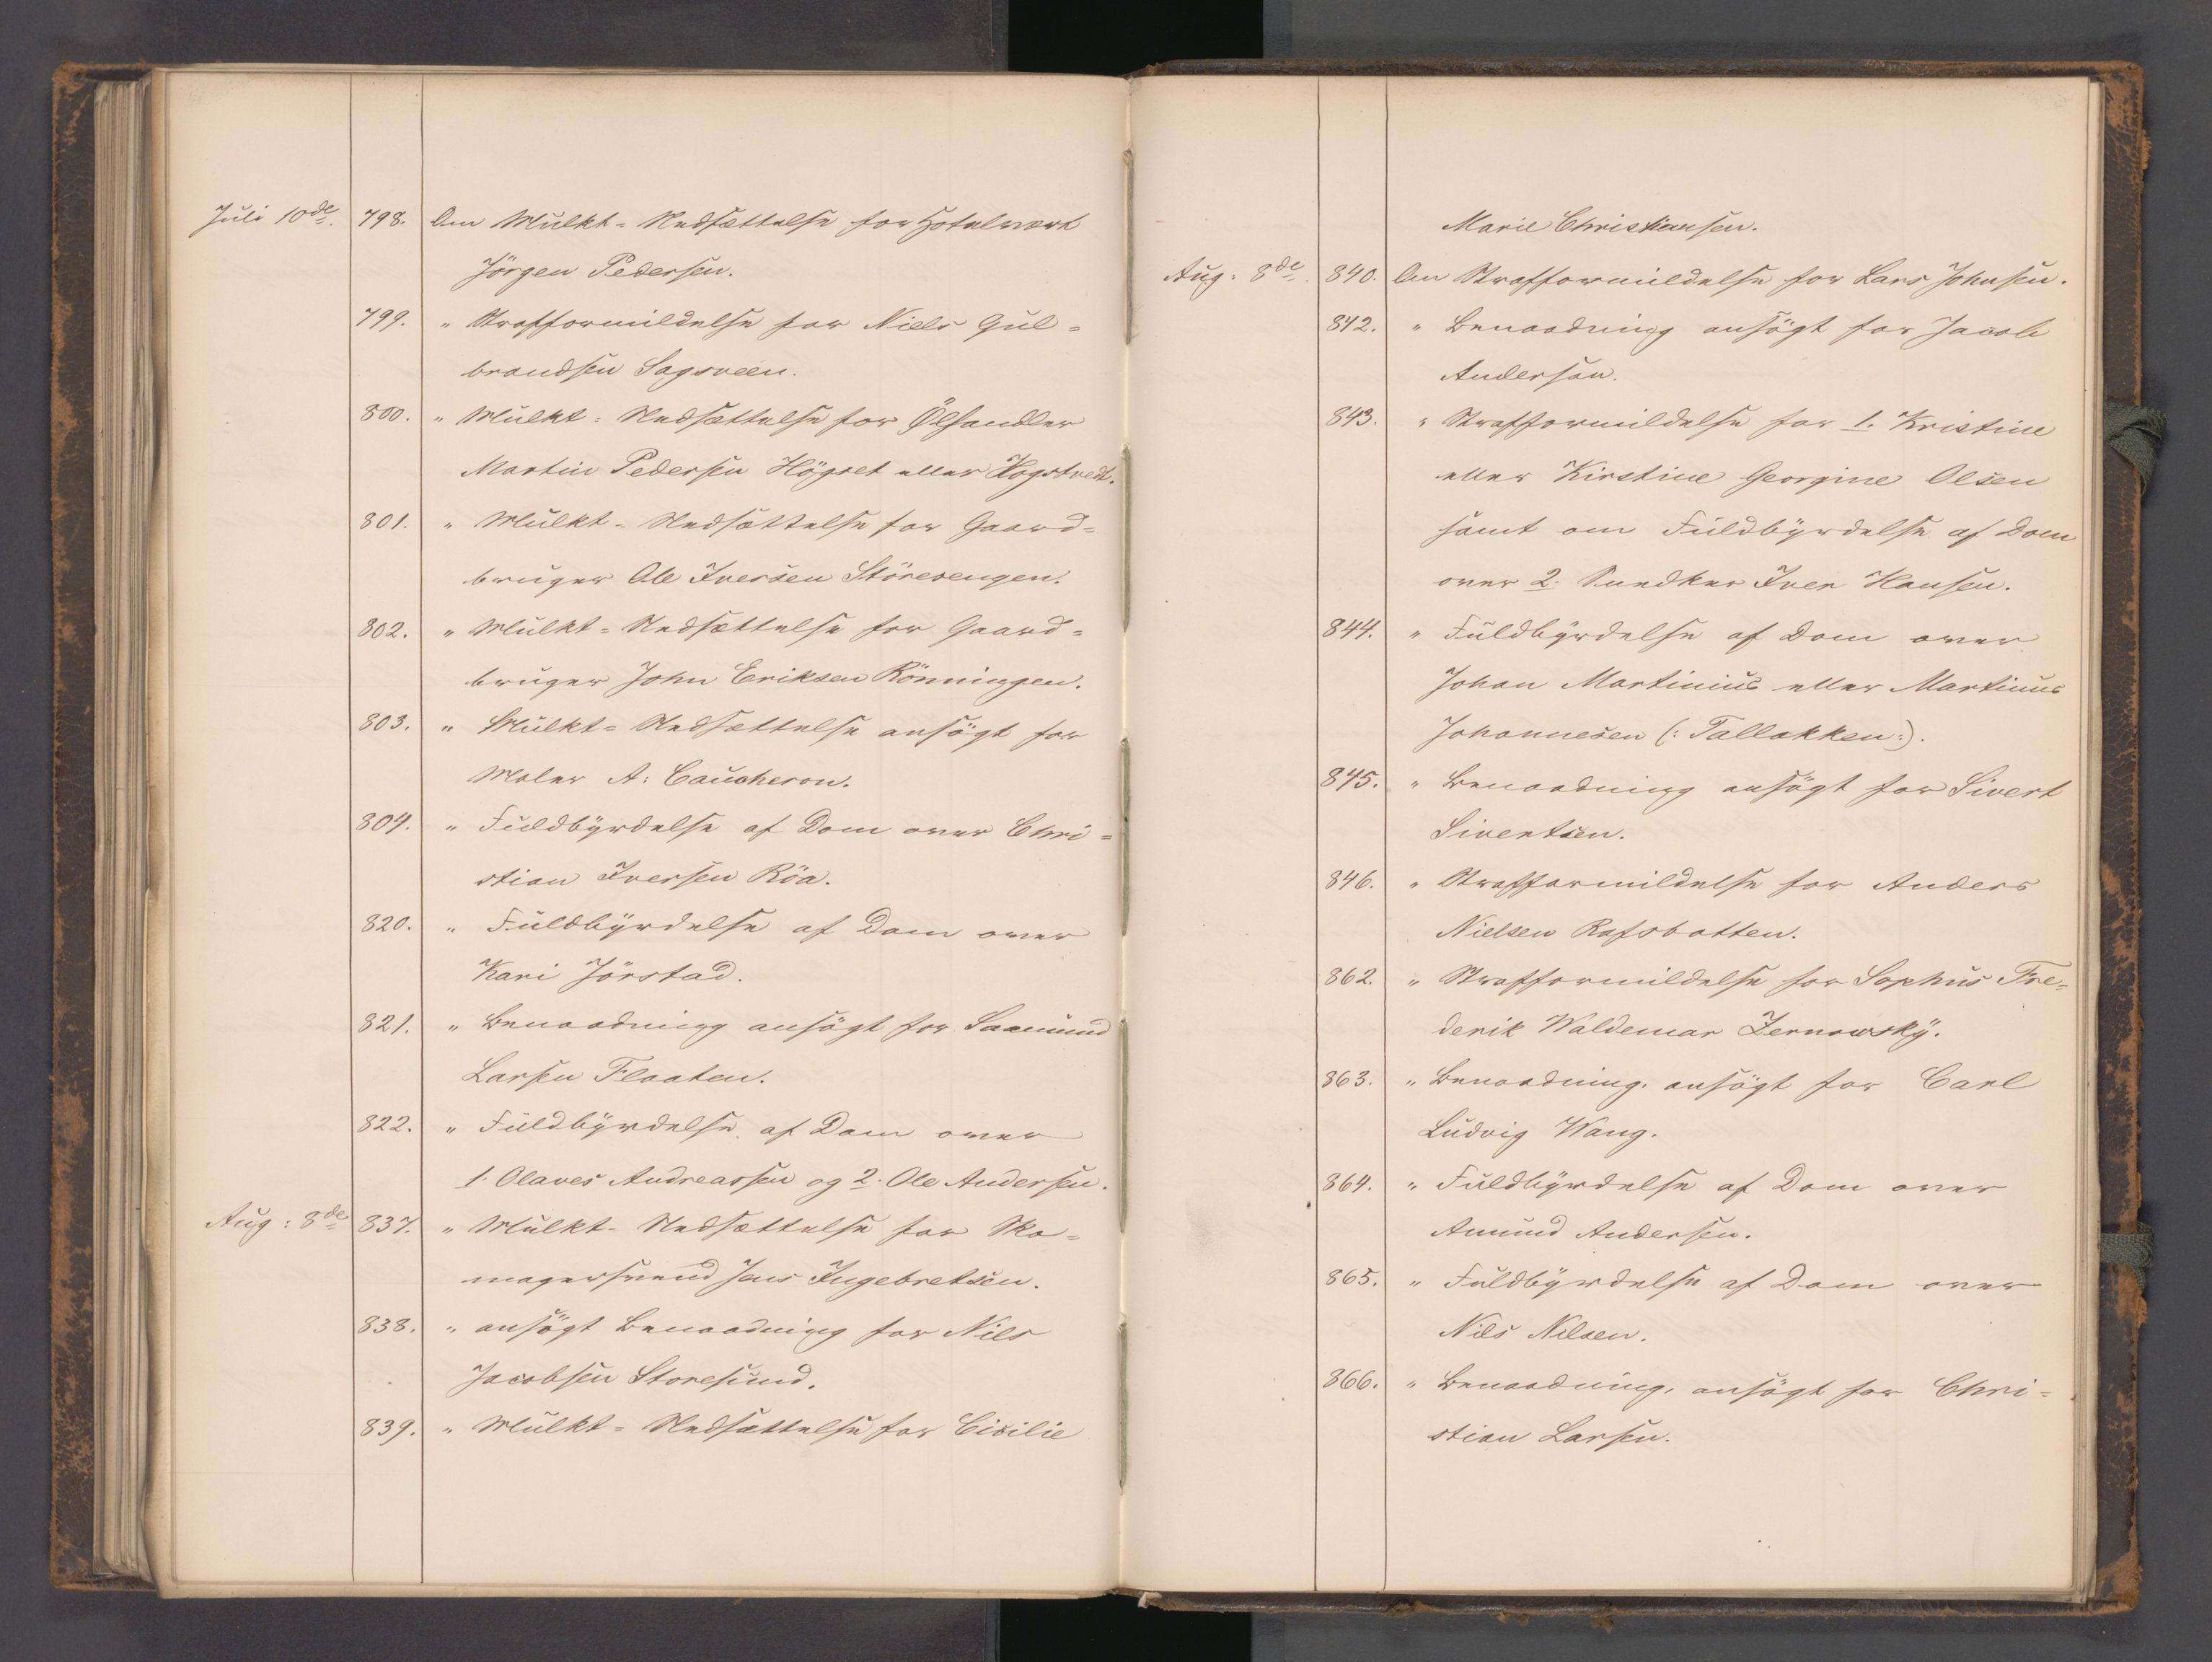 Juli 10de. 798. Om Mulkt-Nedsættelse for Hotelvært
Jörgen Pedersen.
799. " Strafformildelse for Niels Gul-
brandsen Sagsveen.
800. " Mulkt-Nedsættelse for Ölhandler
Martin Pedersen Högset eller Hogstvedt.
801. " Mulkt-Nedsættelse for Gaard-
bruger Ole Iversen Störesengen.
802. " Mulkt-Nedsættelse for Gaard-
bruger John Eriksen Rönningen.
803. " Mulkt-Nedsættelse ansögt for
Maler A: Caucheron.
804. " Fuldbyrdelse af Dom over Chri-
stian Iversen Röa.
820. " Fuldbyrdelse af Dom over
Kari Jörstad.
821. " Benaadning ansögt for Saamund
Larsen Flaaten.
822. " Fuldbyrdelse af Dom over
1. Olaves Andreassen og 2. Ole Andersen.
Aug: 8de 837. " Mulkt-Nedsættelse for Sko-
magersvend Jens Ingebretsen.
838. " ansögt Benaadning for Nils
Jacobsen Storesund.
839. " Mulkt-Nedsættelse for Cicilie
Marie Christiansen.
Aug: 8de. 840. Om Strafformildelse for Lars Johnsen.
842. " Benaadning ansögt for Jacob
Anderson.
843. " Strafformildelse for 1. Kristine
eller Kirstine Georgine Olsen
samt om Fuldbyrdelse af Dom
over 2. Iver Hansen.
844. " Fuldbyrdelse af Dom over
Johan Martinius eller Martinus
Johannesen (: Tallakken:).
845. " Benaadning ansögt for Sivert
Sivertsen.
846. " Strafformildelse for Anders
Nielsen Rafsbotten.
862. " Strafformildelse for Sophus Fre-
derik Waldemar Zernowsky.
863. " Benaadning. ansögt for Carl
Ludvig Wang.
864. " Fuldbyrdelse af Dom over
Amund Andersen.
865. " Fuldbyrdelse af Dom over
Nils Nilsen.
866. " Benaadning, ansögt for Chri-
stian Larsen.